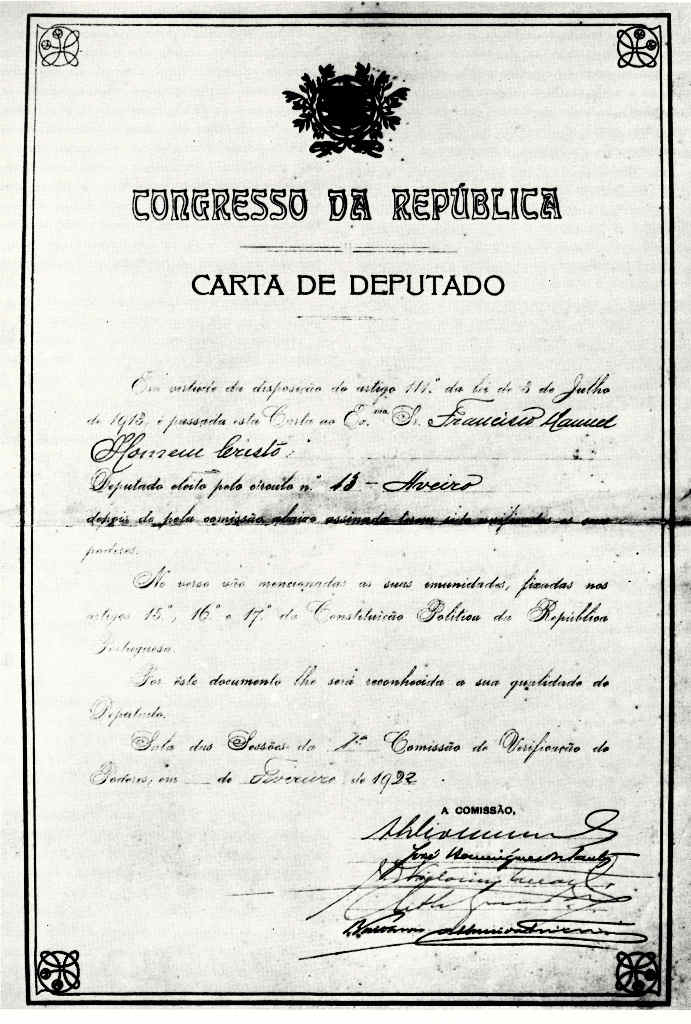 CONGRESSO DA REPÚBLICA
CARTA DE DEPUTADO
Em virtude da disposição do artigo 111.º da lei de 3 de Julho
de 1913, é passada esta Carta ao Ex.mo Sr. Francisco Manuel
Homem Cristo
Deputado eleito pelo circulo n.º 13 - Aveiro
depois de pela comissão abaixo assinada terem sido verificados os seus
poderes.
No verso vão mencionadas as suas imunidades, fixadas nos
artigos 15.º, 16.º e 17.º da Constituição Politica da República
Portuguesa.
Por êste documento lhe será reconhecida a sua qualidade de
Deputado.
Sala das Sessões da 1.ª Comissão de Verificação de
Poderes, em de Fevereiro de 1922
A COMISSÃO,
José Domingues